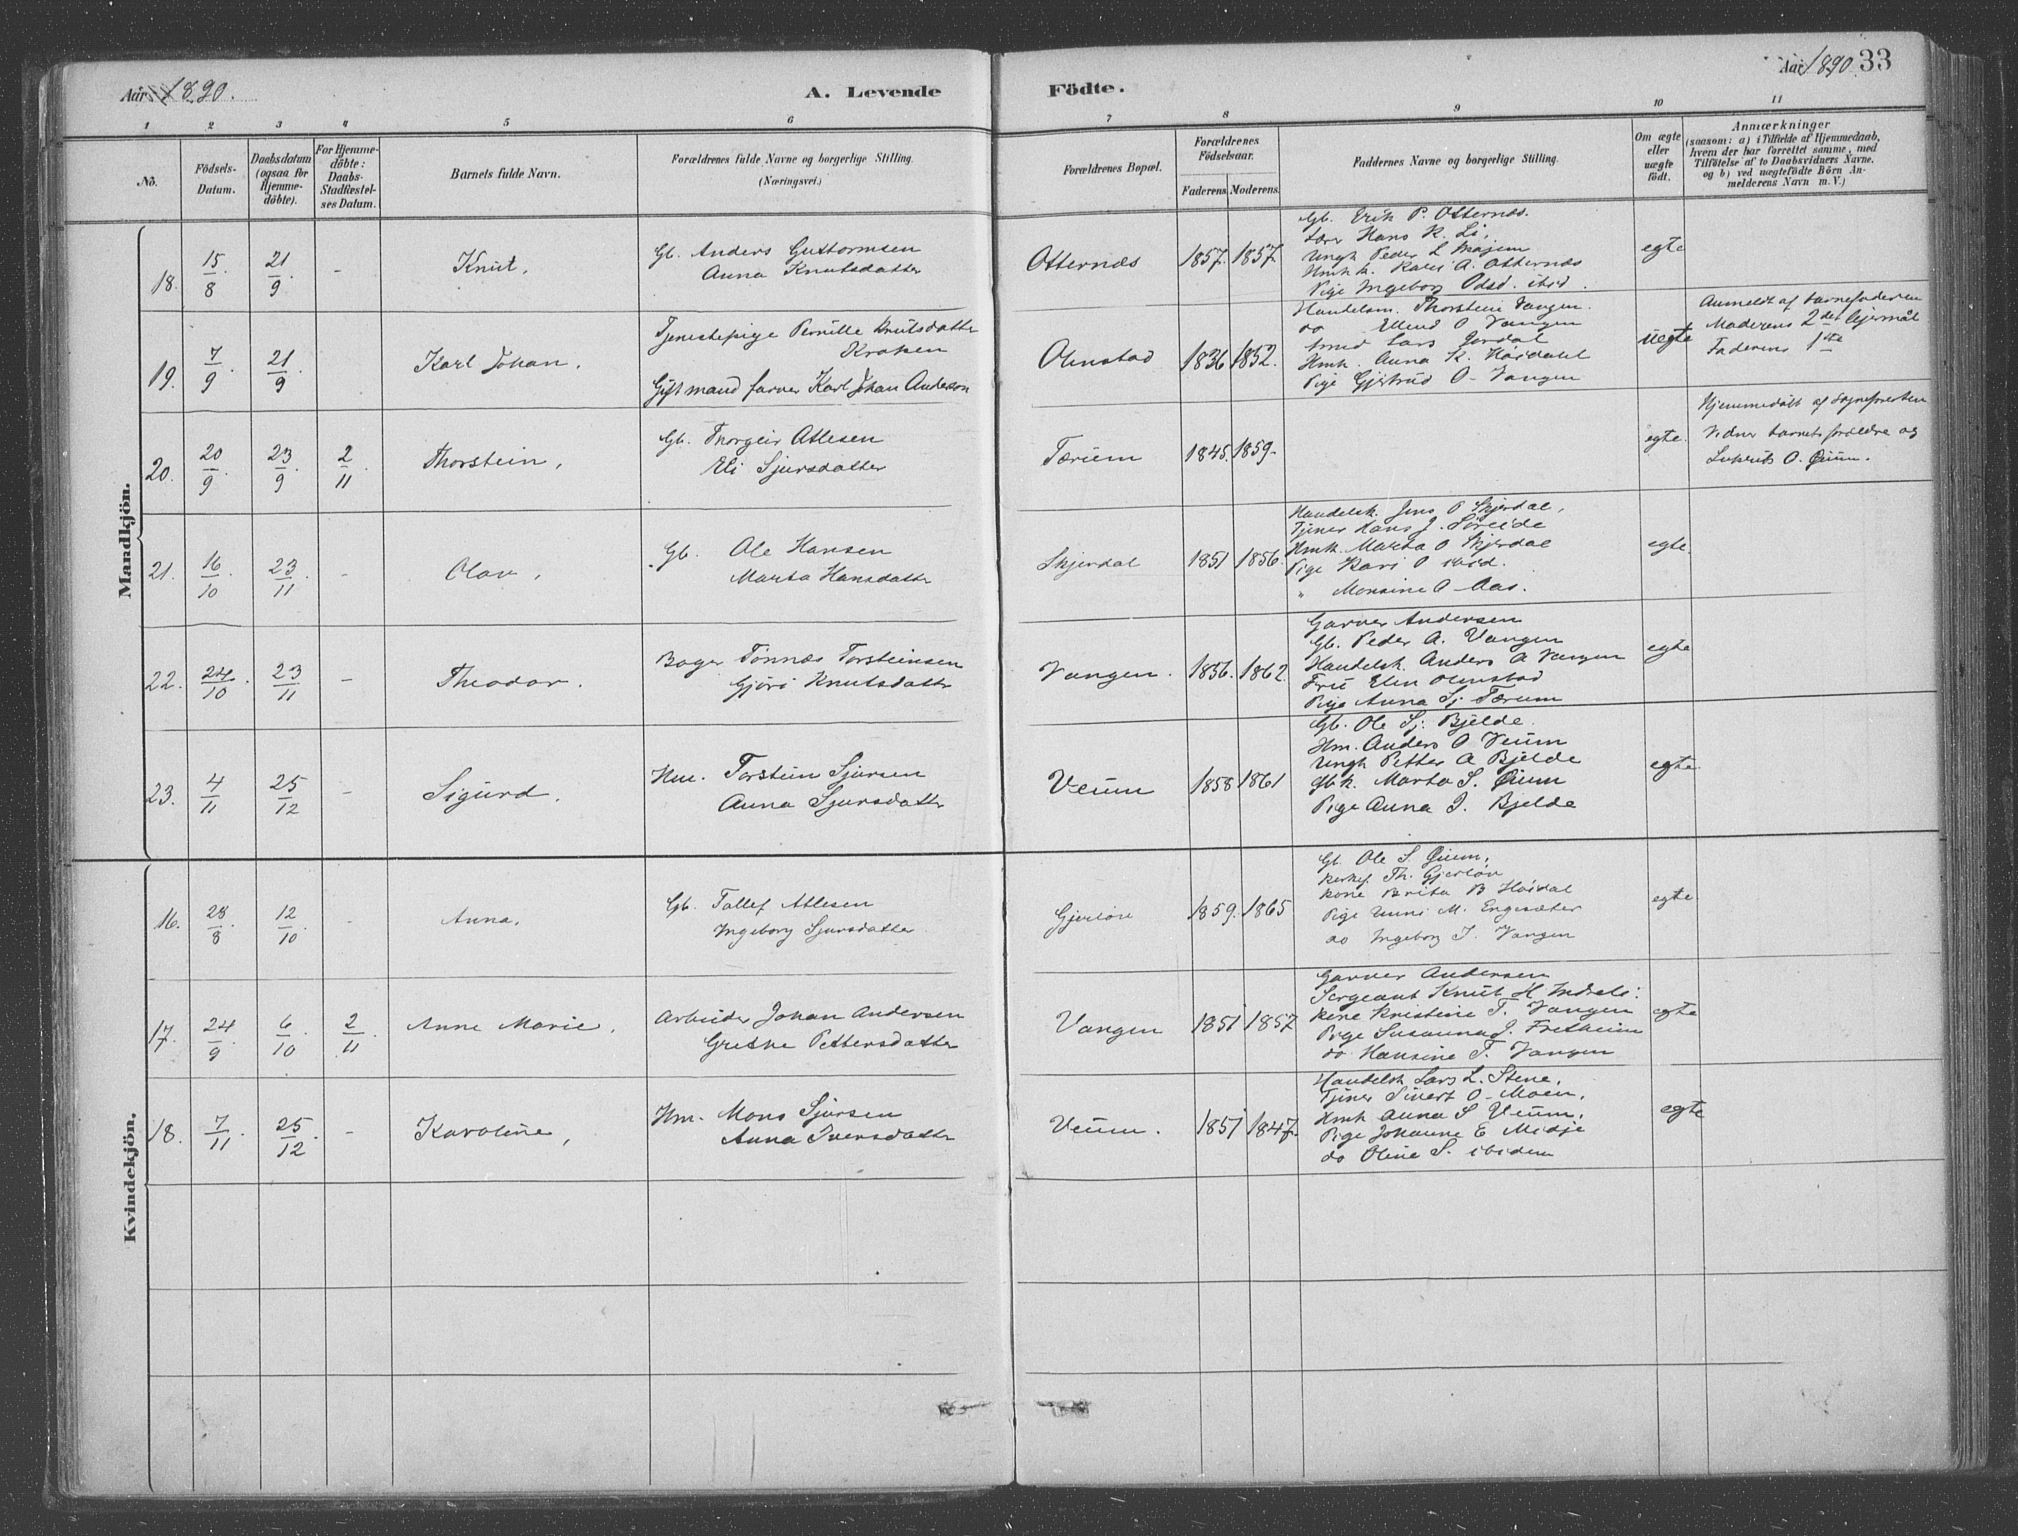 Aar 1890.
A. Levende
Födte.
Aar 1890.
33
1
2
3
4
5
6
7
8
9
10
11
No.
Födsels-
Datum.
Daabsdatum
(ogsaa for
Hjemme-
döbte).
For Hjemme-
döbte:
Daabs-
Stadfæstel-
ses Datum.
Barnets fulde Navn.
Forældrenes fulde Navne og borgerlige Stilling.
(Næringsvei.)
Forældrenes Bopæl.
Forældrenes
Födselsaar.
Faderens.
Moderens.
Faddernes Navne og borgerlige Stilling.
Om ægte
eller
uægte
födt.
Anmærkninger
(saasom: a) i Tilfælde af Hjemmedaab,
hvem der har forrettet samme, med
Tilföielse af to Daabsvidners Navne,
og b) ved uægtefödte Börn An-
melderens Navn m. V.)
Mandkjön.
18.
15/8
21/9
-
Knut,
Gb. Anders Guttormsen
Anna Knutsdatter
Otternæs
1857.
1857.
Gb. Erik P. Otternæs.
Hans R. Li,
Ungk Peder L
Kari A. Otternæs
Pige Ingeborg Odsd. ibid.
egte
19.
7/9
21/9
Karl Johan,
Tjenestepige Pernille Knutsdatter
Kroken
Gift mand farver Karl Johan Anderson
Olmstad
1836
1852.
Handelsm. Thorstein Vangen.
do Ellend O Vangen
Smed Lars
Hmk. Anna K. Höidahl
Pige Gjertrud O. Vangen
uegte
Anmeldt af barnefaderen
Moderens 2det leiermål
Faderens 1ste
20.
20/9
23/9
2/11
Thorstein,
Gb. Thorgeir Atlesen
Eli Sjursdatter
Tærum
1845.
1859.
egte.
Hjemmedöbt af Sognepresten
Vidner barnets forældre og
O. Öium.
21.
16/10
23/11
-
Olav,
Gb. Ole Hansen
Marta Hansdatter
Skjerdal
1851
1856.
Handelsk. Jens O Skjerdal,
Tjener Hans J. Söreide
Hmk. Marta O Skjerdal
Pige Kari O ibid.
" Monsine O Aas.
egte
22.
24/10
23/11
-
Theodor.
Bager Tönnæs Torsteinsen
Gjöri Knutsdatter
Vangen.
1856.
1862.
Garver Andersen
Gb. Peder A. Vangen
Handelsk. Anders A Vangen
Fru Elen Olmstad
Pige Anna Sj Tærum
egte
23.
4/11
25/12
-
Sigurd.
Hm. Torstein Sjursen
Anna Sjursdatter
Veum
1858
1861
Gb. Ole Sj. Bjelde.
Hm. Anders O Veum
Ungk Petter A Bjelde
Gbk. Marta S. Öium
Pige Anna J. Bjelde
egte
Kvindekjön.
16.
28/8
12/10
-
Anna.
Gb. Tollef Atlesen
Ingeborg Sjursdatter
Gjerlöw
1859.
1865
Gb. Ole S. Öium,
Th. Gjerlöw
Kone Brita B Höidal
Pige Unni M. Engesæter
do Ingeborg T. Vangen
egte
17.
24/9
6/10
2/11
Anne Marie,
Arbeider Johan Andersen
Grethe Pettersdatter
Vangen
1851
1857
Garver Andersen
Sergeant Knut H
Kone Kristine T. Vangen
Pige Susanna J. Fretheim
do Hansine T. Vangen
egte
18.
7/11
25/12
-
Karoline,
Hm. Mons Sjursen
Anna Iversdatter
Veum.
1851
1847.
Handelsk Lars L. Stene,
Tjener Sivert O. Moen,
Hmk Anna S Veum,
Pige Johanne E Midje
do Oline S. ibidem
egte